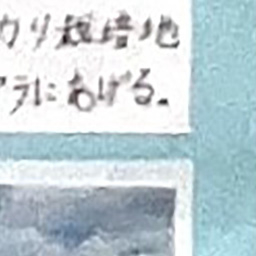 カリ栽培地
ラにあげる。